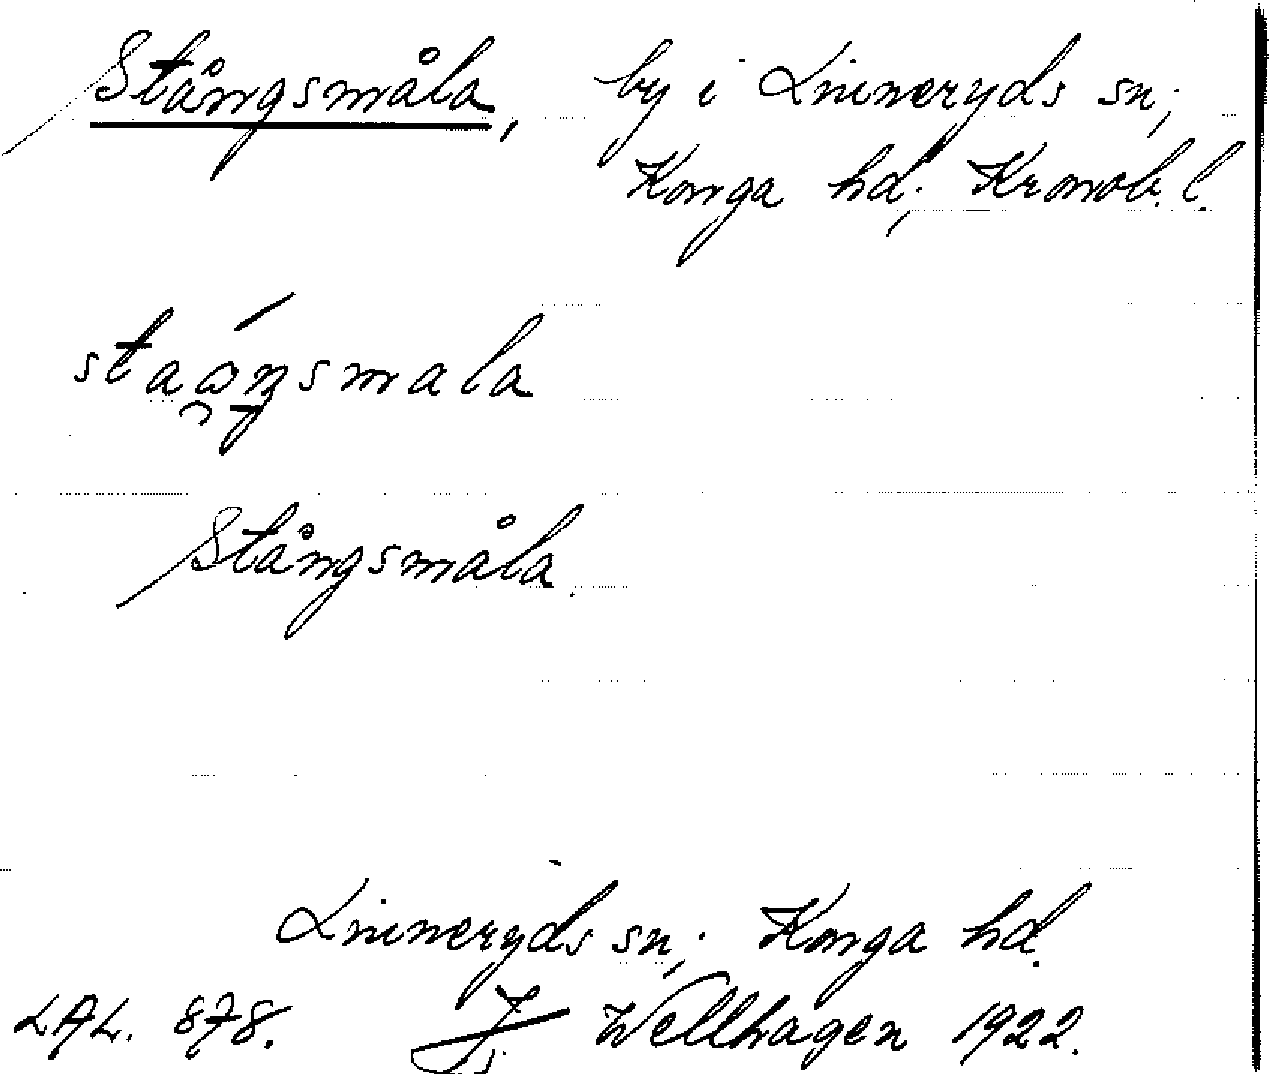 Stångsmåla, by i Linneryds sn;
Konga hd; Kronob. l.
Stångsmåla.
Linneryds sn; Konga hd.
LAL. 878. J. Wellhagen 1922.